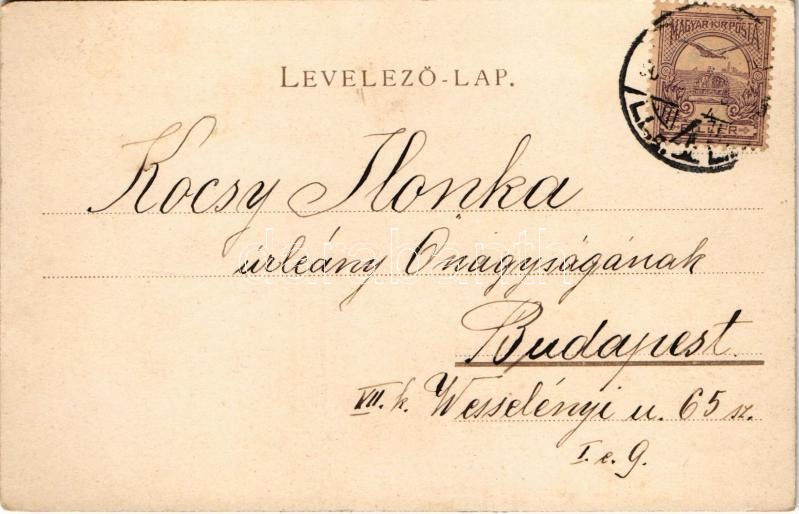 MAGYAR KIR. POSTA
LEVELEZŐ-LAP.
Kocsy Ilonka
úrleány Őnagyságának
Budapest
VII. k. Wesselényi u. 65 sz.
I. e. 9.